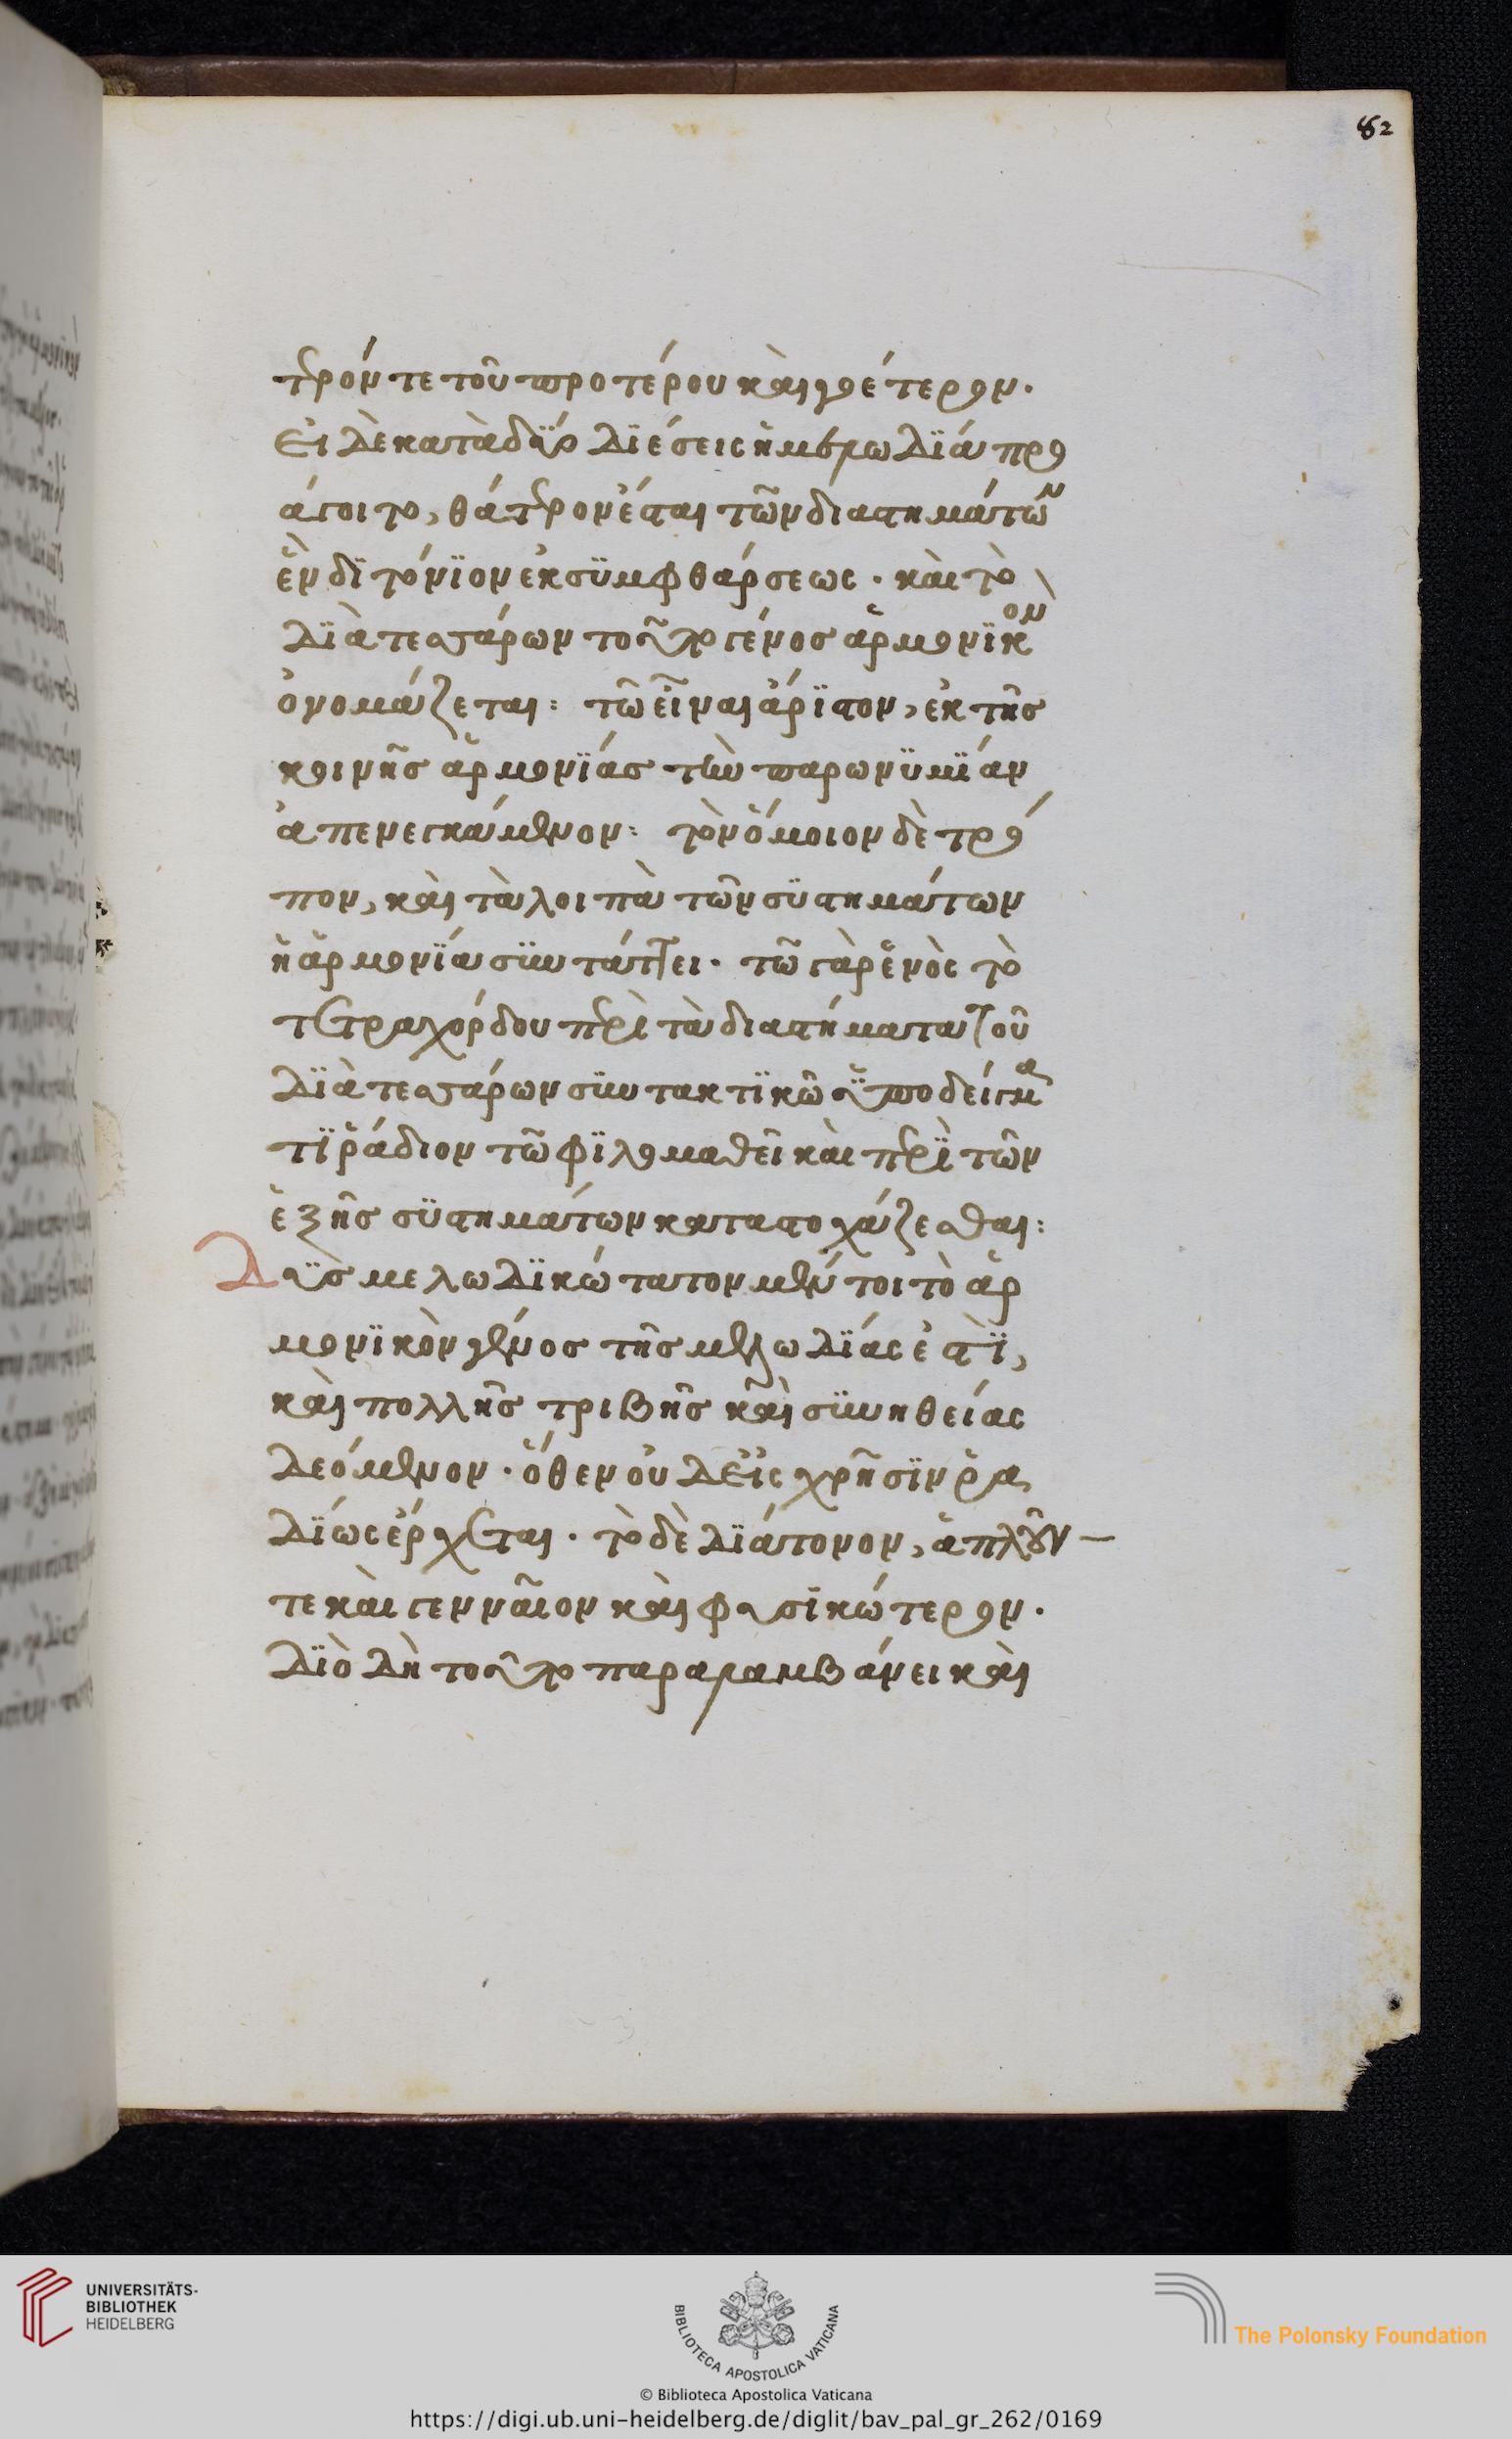 82
τερόν τε τοῦ προτέρου καὶ νοέτερον.
Εἰ δὲ κατὰ δύο διέσεις ἡ μελωδία προ
άγοιτο, θάτερον ἔσται τῶν διαστημάτων
ἓν διτόνιον ἐκ συμφθάρσεως. καὶ τὸ
διὰ τεσσάρων τοῦτο γένος ἁρμονικὸν
ὀνομάζεται: τῶ εἶναι ἄριστον, ἐκ τῆς
κοινῆς ἁρμονίας τὴν παρωνυμίαν
ἀπενεγκάμενον: τὸν ὅμοιον δὲ τρό
πον, καὶ τὰ λοιπὰ τῶν συστημάτων
ἡ ἁρμονία συντάττει. τῶ γὰρ ἑνὸς το
τετραχόρδου περὶ τὰ διαστήματα τοῦ
διὰ τεσσάρων συντακτικῶ ὑποδείγμα
τι ῥάδιον τῶ φιλομαθεῖ καὶ περὶ τῶν
ἑξῆς συστημάτων καταστοχάζεσθαι:
Δυσμελωδικώτατον μέντοι τὸ ἁρ
μονικὸν γένος τῆς μελωδίας ἐστὶ,
καὶ πολλῆς τριβῆς καὶ συνηθείας
δεόμενον. ὅθεν οὐδ εἰς χρῆσιν ῥα
δίως ἔρχεται. τὸ δὲ διάτονον, ἁπλοῦν
τε καὶ γενναῖον καὶ φυσικώτερον.
διὸ δὴ τοῦτο παραλαμβάνει καὶ
UNIVERSITÄTS-
BIBLIOTHEK
HEIDELBERG
BIBLIOTECA APOSTOLICA VATICANA
© Biblioteca Apostolica Vaticana
The Polonsky Foundation
https://digi.ub.uni-heidelberg.de/diglit/bav_pal_gr_262/0169